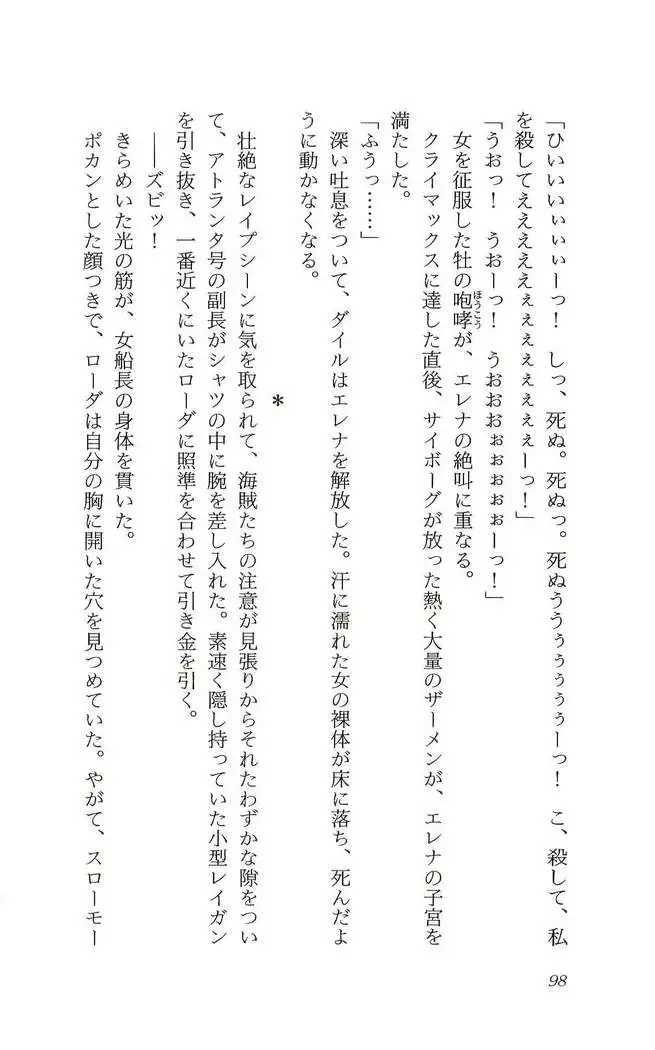 「ひいいいぃぃぃーっ！　しっ、死ぬ。死ぬっ。死ぬうううぅぅぅぅーっ！　こ、殺して、私
を殺してえええええぇぇぇぇぇぇぇーっ！」
「うおっ！　うおーっ！　うおおおぉぉぉぉぉーっ！」
女を征服した牡の咆哮が、エレナの絶叫に重なる。
ほうこう
クライマックスに達した直後、サイボーグが放った熱く大量のザーメンが、エレナの子宮を
満たした。
「ふうっ……」
深い吐息をついて、ダイルはエレナを解放した。汗に濡れた女の裸体が床に落ち、死んだよ
うに動かなくなる。
＊
壮絶なレイプシーンに気を取られて、海賊たちの注意が見張りからそれたわずかな隙をつい
て、アトランタ号の副長がシャツの中に腕を差し入れた。素速く隠し持っていた小型レイガン
を引き抜き、一番近くにいたローダに照準を合わせて引き金を引く。
――ズビッ！
きらめいた光の筋が、女船長の身体を貫いた。
ポカンとした顔つきで、ローダは自分の胸に開いた穴を見つめていた。やがて、スローモー
98